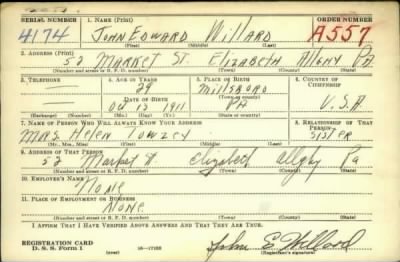 SERIAL NUMBER 1. NAME (Print) ORDER NUMBER
4174 JOHN EDWARD WILLARD A557
(First) (Middle) (Last)
2. ADDRESS (Print)
52 MARKET ST. ELIZABETH ALLGHY PA
(Number and street or R. F. D. number) (Town) (County) (State)
3. TELEPHONE 4. AGE IN YEARS 5. PLACE OF BIRTH 6. COUNTRY OF CITIZENSHIP
29 Millsboro
DATE OF BIRTH (Town or county)
Oct 13 1911 PA U.S.A
(Exchange) (No.) (Mo.) (Day) (Yr.) (State or country)
7. NAME OF PERSON WHO WILL ALWAYS KNOW YOUR ADDRESS 8. RELATIONSHIP OF THAT PERSON
MRS. Helen Towzey SISTER
(Mr., Mrs., Miss) (First) (Middle) (Last)
9. ADDRESS OF THAT PERSON
52 Market St Elizabeth Allghy Pa
(Number and street or R. F. D. number) (Town) (County) (State)
10. EMPLOYER'S NAME
None
11. PLACE OF EMPLOYMENT OR BUSINESS
None
(Number and street or R. F. D. number) (Town) (County) (State)
I AFFIRM THAT I HAVE VERIFIED ABOVE ANSWERS AND THAT THEY ARE TRUE.
REGISTRATION CARD
D. S. S. Form 1 John E Willard
(over) (Registrar's signature)